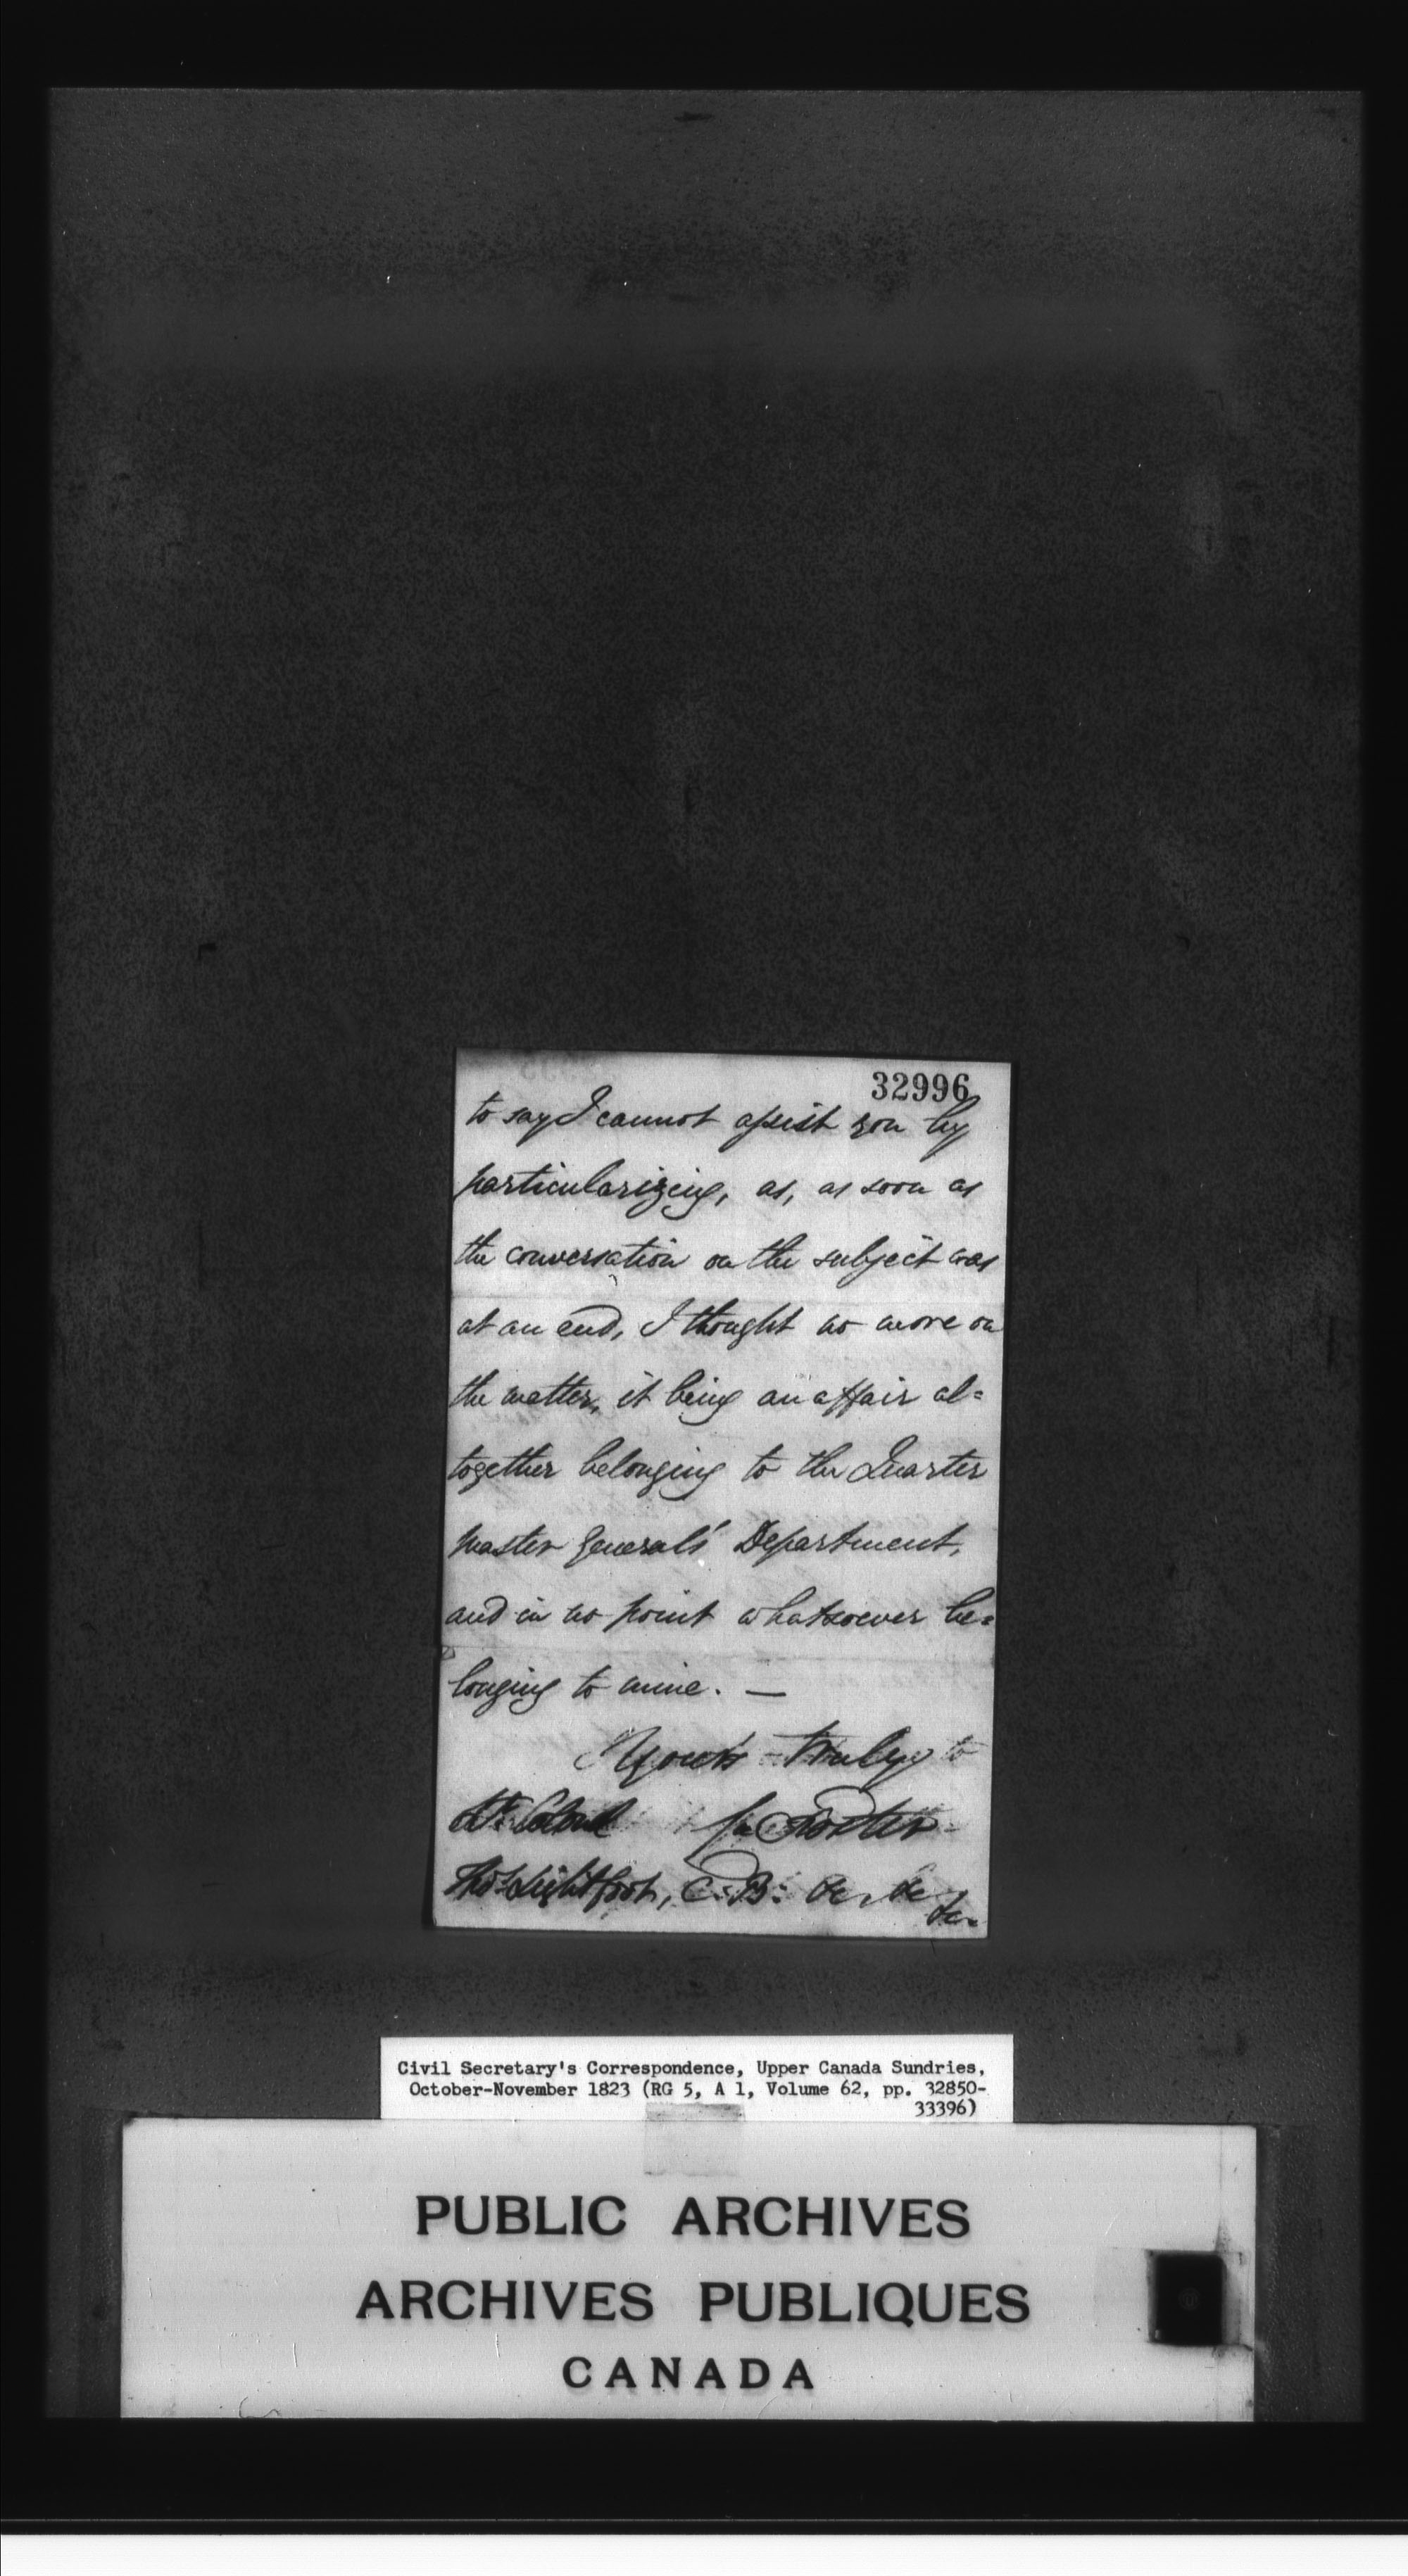 32996
to say I cannot assist you by
particularizing, as, as soon as
the conversation on the subject was
at an end, I thought no more on
the matter, it being an affair al=
together belonging to the Quarter
Master General's Department,
and in no point whatsoever be=
longing to mine. —
Yours truly
Lt. Colonel
Thos. Lightfoot, C.B: &c &c
&c
Civil Secretary's Correspondence, Upper Canada Sundries,
October-November 1823 (RG 5, A 1, Volume 62, pp. 32850-
33396)
PUBLIC ARCHIVES
ARCHIVES PUBLIQUES
CANADA